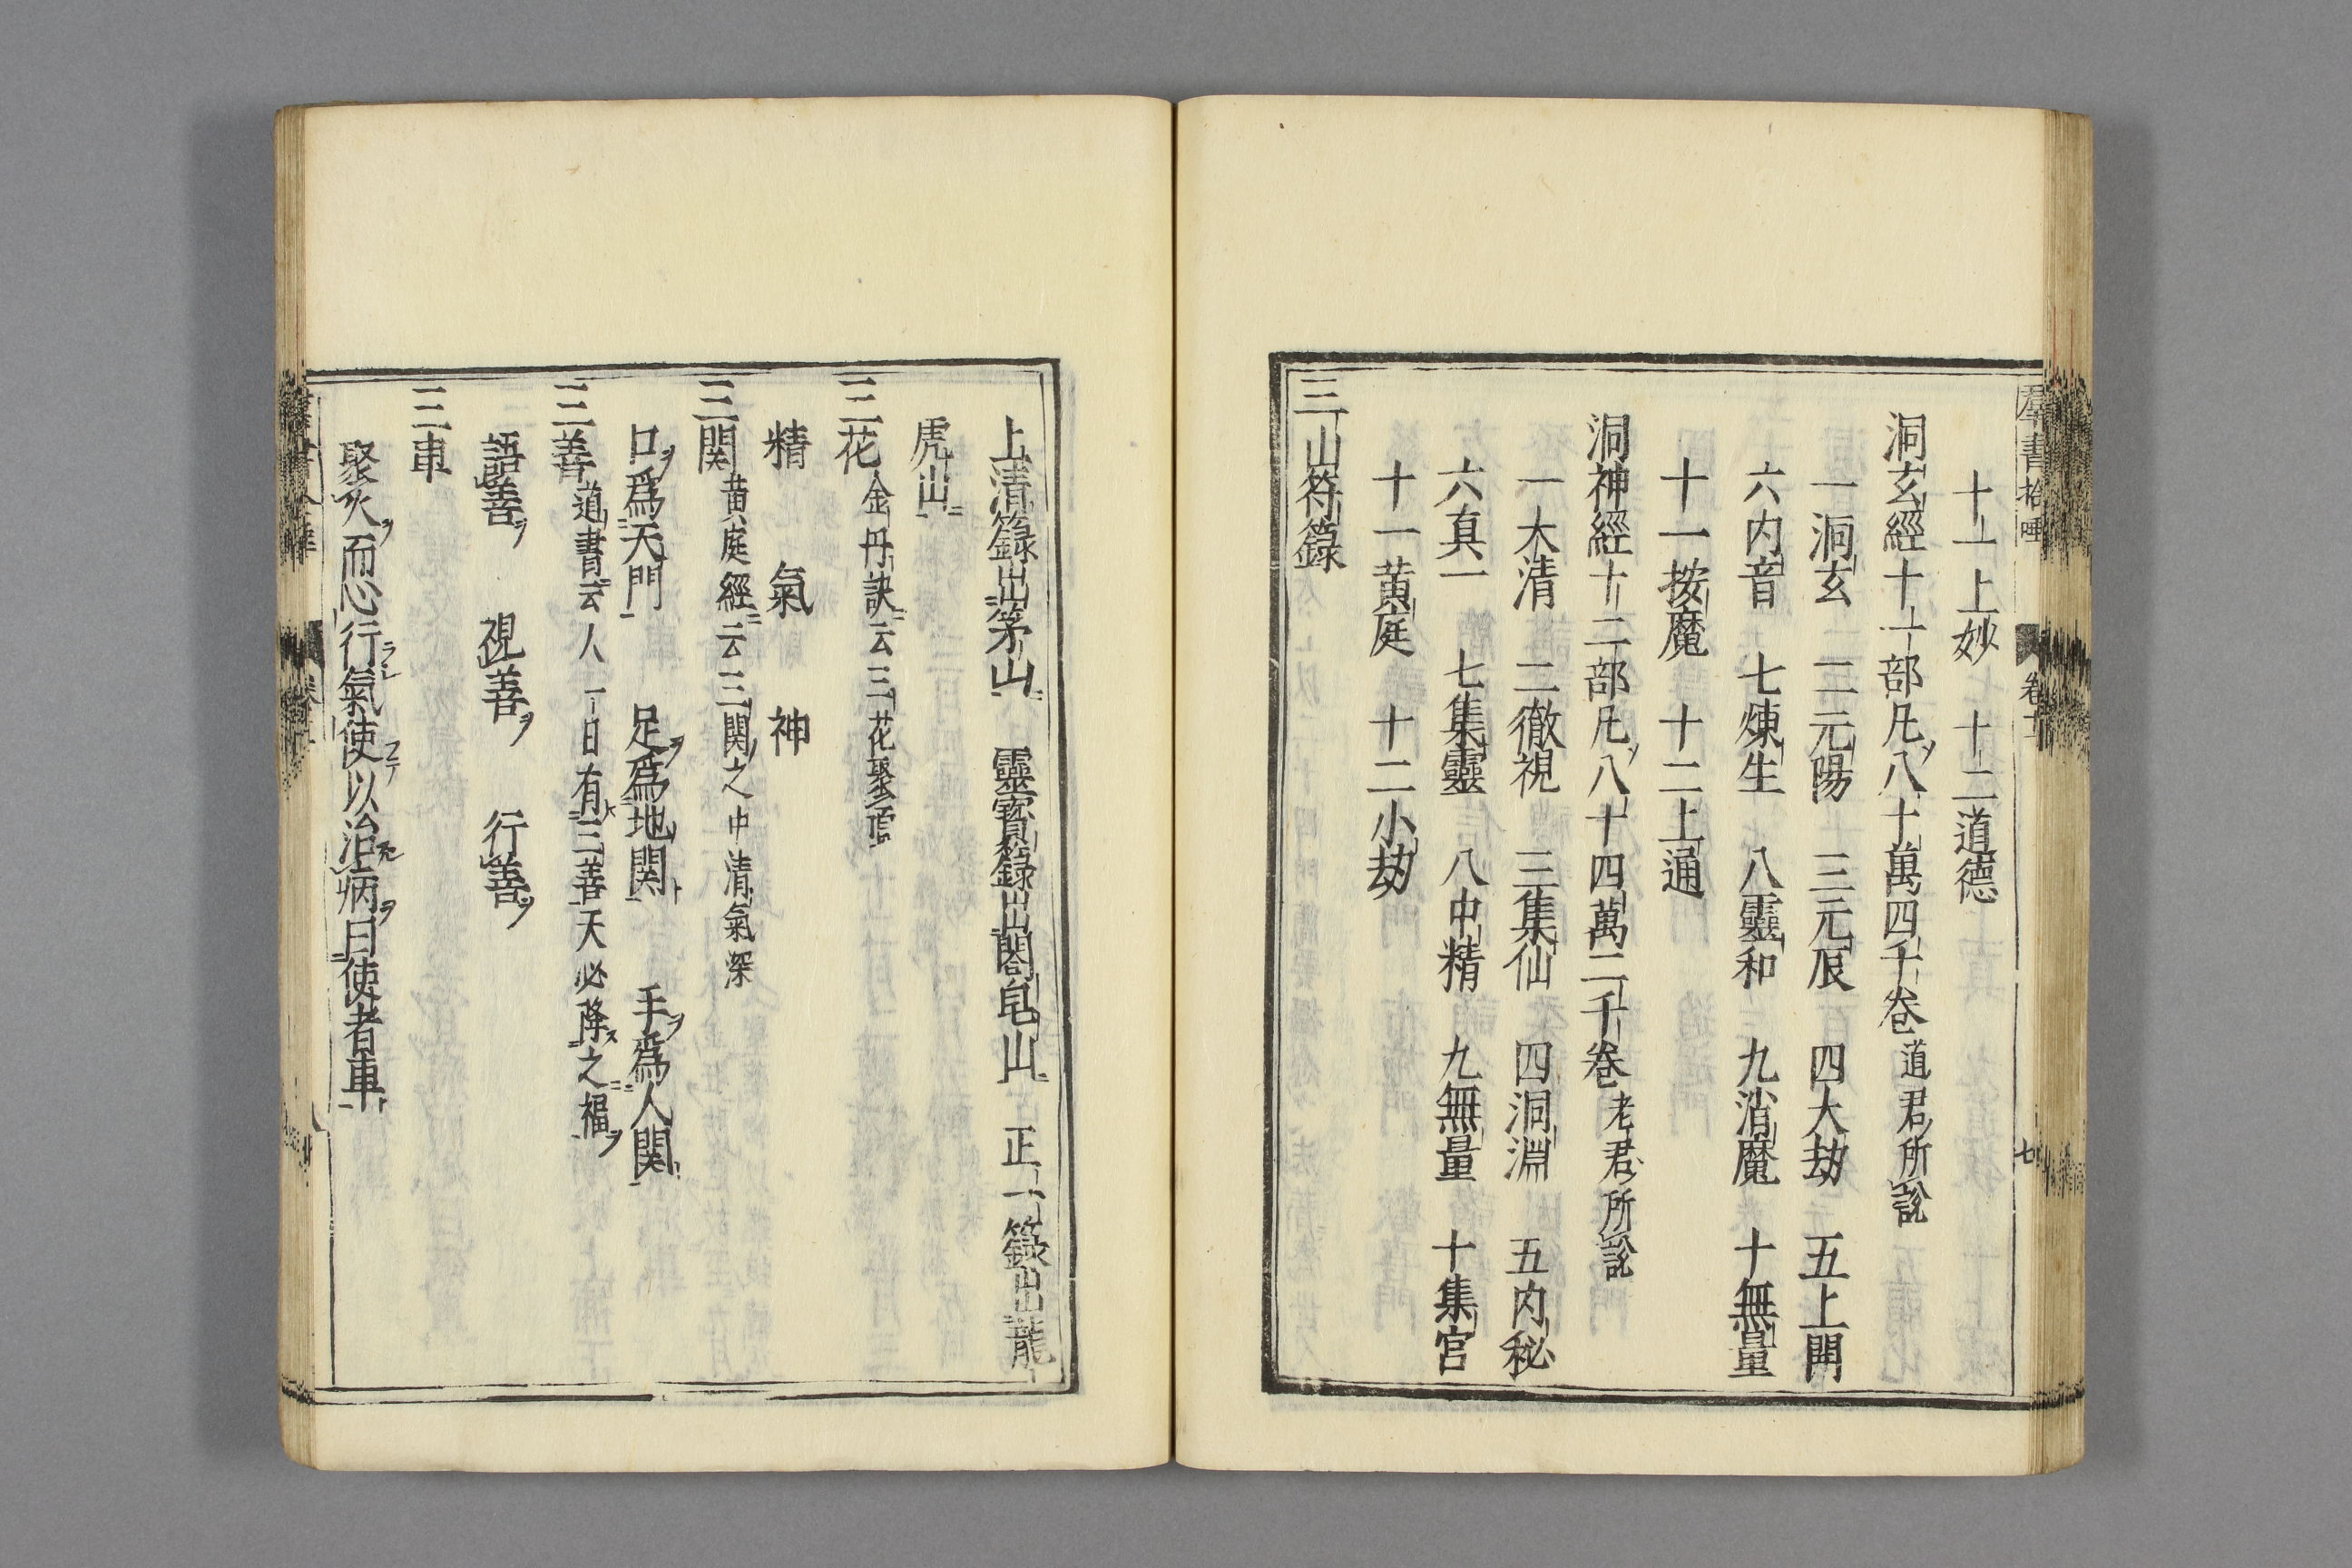 羣書拾唾 卷十 七
十一上妙 十二道德
洞玄經十二部凡八十萬四千卷 道君所說
一洞玄 二元陽 三元辰 四大劫 五上開
六内音 七煉生 八靈和 九消魔 十無量
十一按魔 十二上通
洞神經十二部凡八十四萬二千卷 老君所說
一太清 二徹視 三集仙 四洞淵 五内秘
六真一 七集靈 八中精 九無量 十集宫
十一黄庭 十二小劫
三山符籙
上清籙出茅山 靈寶籙出閤皂山 正一籙出龍
虎山
三花 金丹訣云三花聚頂
精 氣 神
三関 黄庭經云三関之中清氣深
口爲天門 足爲地関 手爲人関
三善 道書云人一日有三善天必降之福
語善 視善 行善
三車
聚火而心行氣使以治病曰使者車